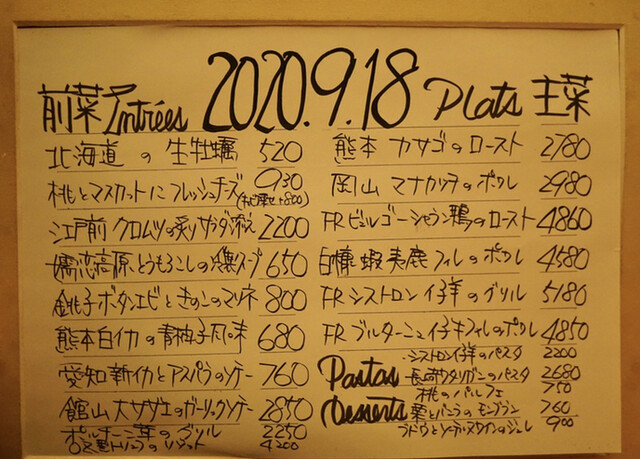 前菜 Entrées 2020.9.18 Plats 主菜
北海道 の 生牡蠣 520
桃とマスカットに フレッシュチーズ 930
江戸前 クロムツの炙り サラダ添え 2200
嬬恋高原とうもろこしの冷製スープ 650
銚子 ボタンエビ ときのこのマリネ 800
熊本白イカの青柚子風味 680
愛知 新イカとアスパラのソテー 760
館山 大サザエのガーリックソテー 2850
ポルチーニ茸 の グリル 2250
4200
熊本 カサゴのロースト 2780
岡山 マナカツオのポワレ 2980
FR ビュルゴーシャラン鴨のロースト 4860
白糠 蝦夷鹿フィレのポワレ 4580
FR シストロン仔羊のグリル 5180
FR ブルターニュ仔牛フィレのポワレ 4850
Pastas
シストロン仔羊のパスタ 2200
長崎ワタリガニのパスタ 2680
Desserts
桃のパルフェ 750
栗とバニラのモンブラン 760
900